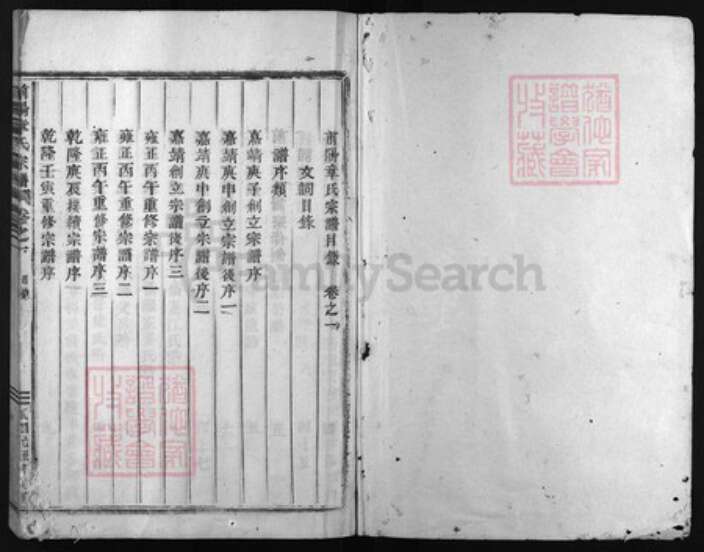 前陽章氏宗譜目錄 卷之一
文詞目錄
譜序類
嘉靖庚子創立宗譜序
嘉靖庚申創立宗譜後序一
嘉靖庚申創立宗譜後序二
嘉靖創立宗譜後序三
雍正丙午重修宗譜序一
雍正丙午重修宗譜序二
雍正丙午重修宗譜序三
乾隆庚辰接續宗譜序
乾隆壬寅重修宗譜序
FamilySearch
猶他家譜學會收藏
猶他家譜學會收藏